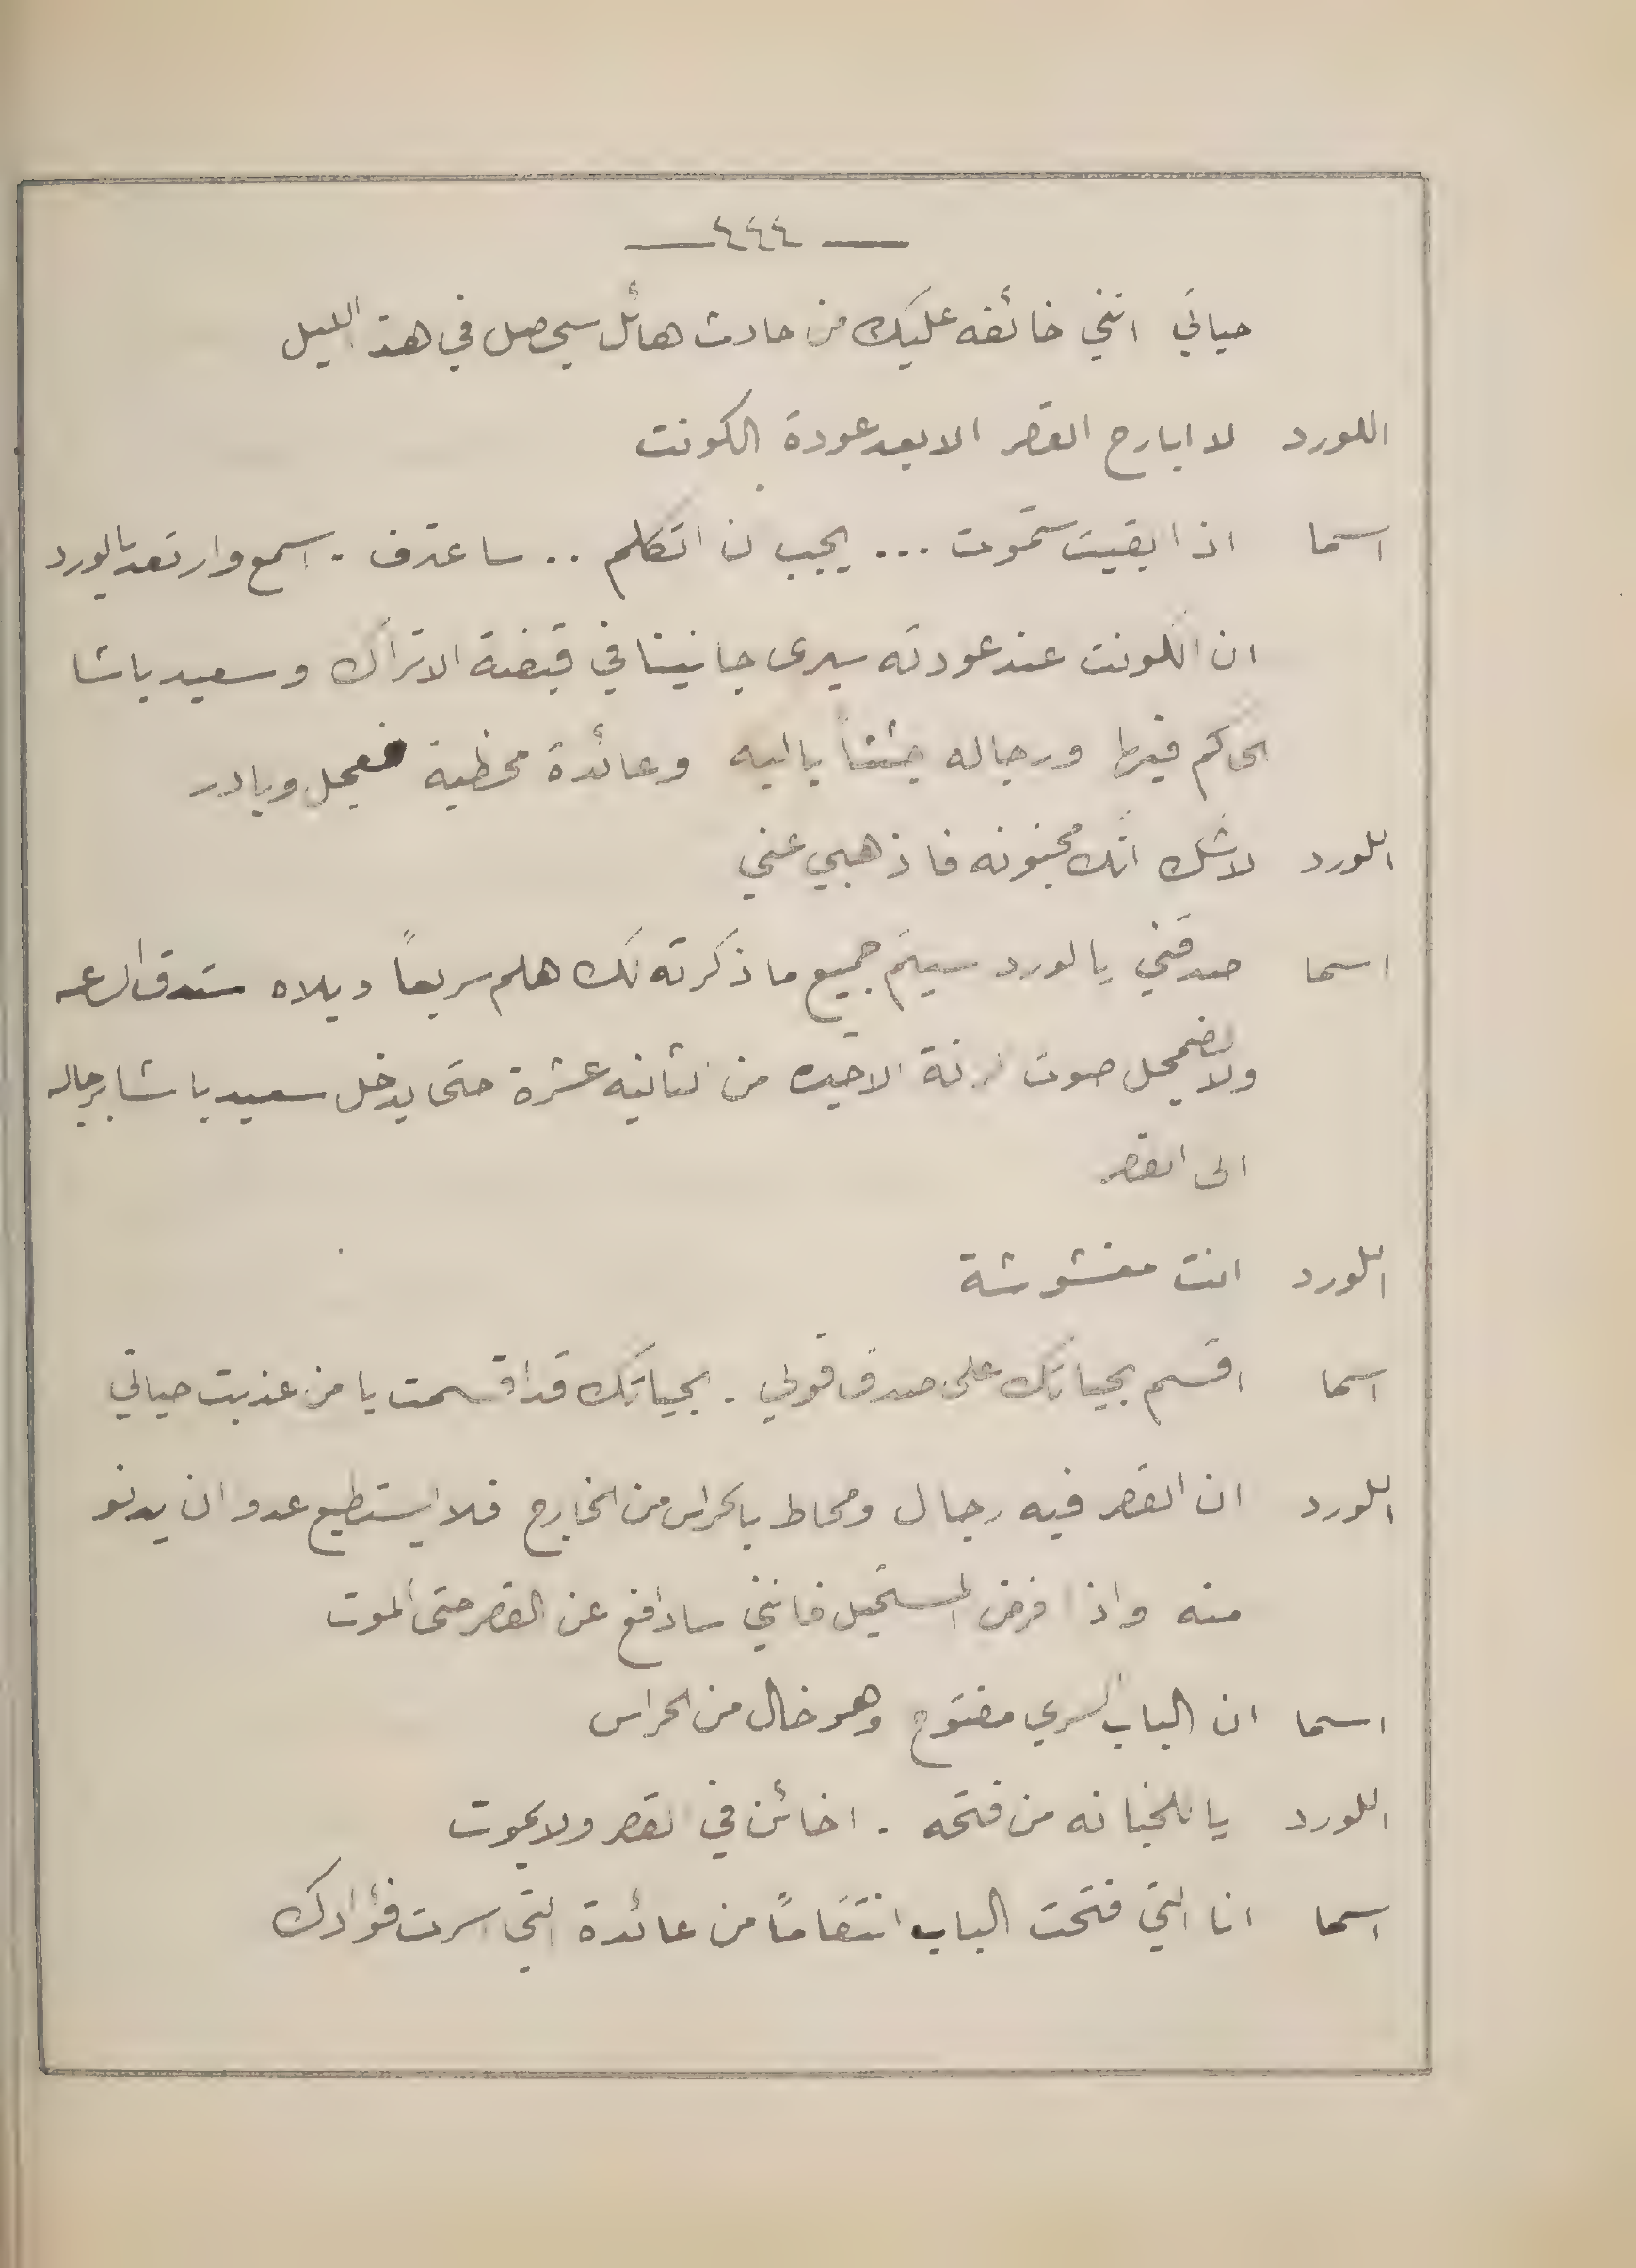 — ٤٤٤ —
حياتي انني خائفه عليك من حادث هائل سيحصل في هذ الليل
اللورد لا ابارح القصر الا بعد عودة الكونت
اسما اذا بقيت ستموت ... يجب ان اتكلم .. ساعترف . اسمع وارتعد يالورد
ان الكونت عند عودته سيرى جانينا في قبضة الاتراك وسعيد باشا
الحاكم فيها ورجاله جثثاً باليه وعائدة محظية فعجل وبادر
اللورد لاشك انك مجنونه فاذهبي عني
اسما صدقني يالورد سيتم جميع ما ذكرته لك هلم سريعاً ويلاه ستدق الساعه
ولا يضمحل صوت الرنة الاخيره من الثانيه عشرة حتى يدخل سعيد باشا برجاله
الى القصر
اللورد انت مغشوشة
اسما اقسم بحياتك على صدق قولي . بحياتك قد اقسمت يا من عذبت حياتي
اللورد ان القصر فيه رجال ومحاط بالحراس من الخارج فلا يستطيع عدو ان يدنو
منه واذا فرض المستحيل فانني سادافع عن القصر حتى الموت
اسما ان الباب السري مفتوح وهو خال من الحراس
اللورد يا للخيانه من فتحه . اخائن في القصر ولا يموت
اسما انا التي فتحت الباب انتقاماً من عائدة التي اسرت فؤادك